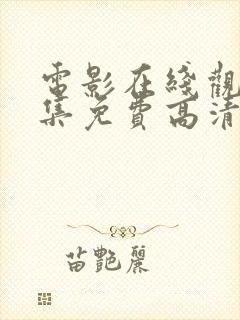 電影在綫觀
集免費高清
苗艷麗